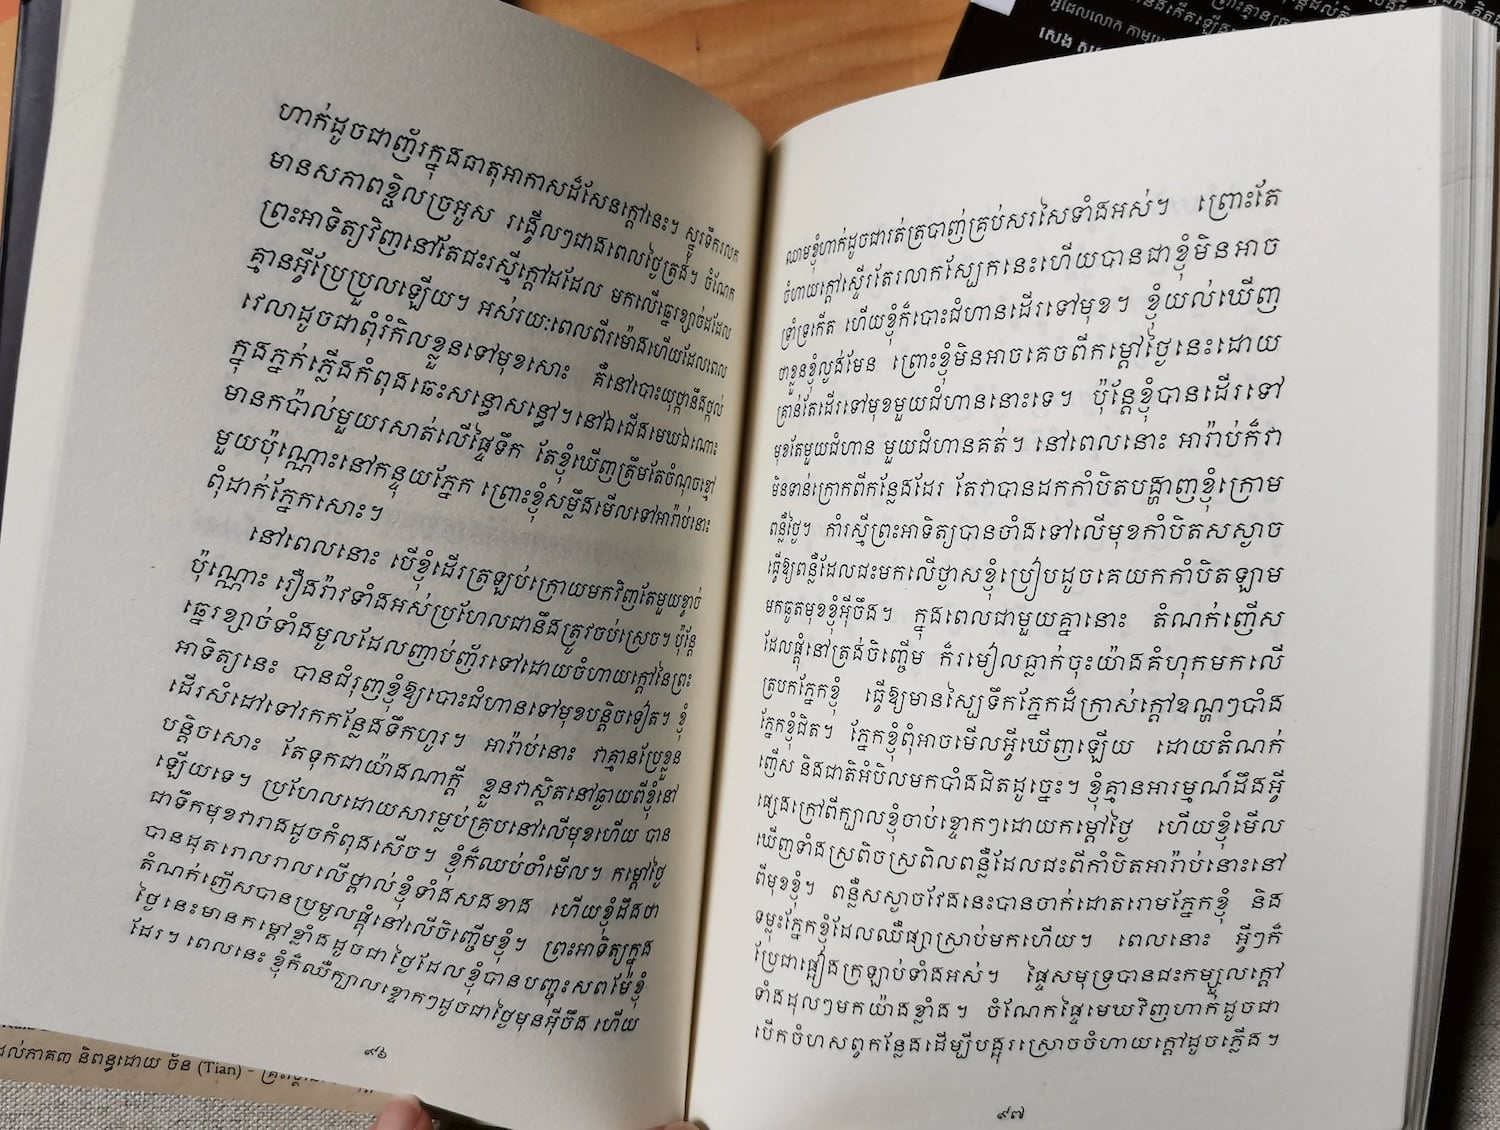 ហាក់ដូចជាញ័រក្នុងធាតុអាកាសដ៏សែនក្ដៅនេះ។ សូរទឹករលក
មានសភាពខ្ជិលច្រអូស រង្វើលៗជាងពេលថ្ងៃត្រង់។ ចំណែក
ព្រះអាទិត្យវិញនៅតែជះរស្មីក្ដៅដដែល មកលើឆ្នេរខ្សាច់ដដែល
គ្មានអ្វីប្រែប្រួលឡើយ។ អស់រយៈពេលពីរម៉ោងហើយដែលពេល
វេលាដូចជាពុំរំកិលខ្លួនទៅមុខសោះ គឺនៅបោះយុថ្កានឹងថ្កល់
ក្នុងភ្នក់ភ្លើងកំពុងឆេះសន្ធោសន្ធៅ។ នៅឯជើងមេឃឯណោះ
មានកប៉ាល់មួយរសាត់លើផ្ទៃទឹក តែខ្ញុំឃើញត្រឹមតែចំណុចខ្មៅ
មួយប៉ុណ្ណោះនៅកន្ទុយភ្នែក ព្រោះខ្ញុំសម្លឹងមើលទៅអារ៉ាប់នោះ
ពុំដាក់ភ្នែកសោះ។
នៅពេលនោះ បើខ្ញុំដើរត្រឡប់ក្រោយមកវិញតែមួយខ្វាច់
ប៉ុណ្ណោះ រឿងរ៉ាវទាំងអស់ប្រហែលជានឹងត្រូវចប់ស្រេច។ ប៉ុន្តែ
ឆ្នេរខ្សាច់ទាំងមូលដែលញាប់ញ័រទៅដោយចំហាយក្ដៅនៃព្រះ
អាទិត្យនេះ បានជំរុញខ្ញុំឱ្យបោះជំហានទៅមុខបន្តិចទៀត។ ខ្ញុំ
ដើរសំដៅទៅរកកន្លែងទឹកហូរ។ អារ៉ាប់នោះ វាគ្មានប្រែខ្លួន
បន្តិចសោះ តែទុកជាយ៉ាងណាក្ដី ខ្លួនវាស្ថិតនៅឆ្ងាយពីខ្ញុំនៅ
ឡើយទេ។ ប្រហែលដោយសារម្លប់គ្របនៅលើមុខហើយ បាន
ជាទឹកមុខវារាងដូចកំពុងសើច។ ខ្ញុំក៏ឈប់ចាំមើល។ កម្ដៅថ្ងៃ
បានដុតរោលរាលលើថ្ពាល់ខ្ញុំទាំងសងខាង ហើយខ្ញុំដឹងថា
តំណក់ញើសបានប្រមូលផ្ដុំនៅលើចិញ្ចើមខ្ញុំ។ ព្រះអាទិត្យក្នុង
ថ្ងៃនេះមានកម្ដៅខ្លាំងដូចជាថ្ងៃដែលខ្ញុំបានបញ្ចុះសពម៉ែខ្ញុំ
ដែរ។ ពេលនេះ ខ្ញុំក៏ឈឺក្បាលខ្ទោកៗដូចជាថ្ងៃមុនអ៊ីចឹង ហើយ
៩៦
ដល់ភាគ៣ និពន្ធដោយ ច័ន (Tian) –
ឈាមខ្ញុំហាក់ដូចជារត់ត្របាញ់គ្រប់សរសៃទាំងអស់។ ព្រោះតែ
ចំហាយក្ដៅស្ទើរតែរលាកស្បែកនេះហើយបានជាខ្ញុំមិនអាច
ទ្រាំទ្រកើត ហើយខ្ញុំក៏បោះជំហានដើរទៅមុខ។ ខ្ញុំយល់ឃើញ
ថាខ្លួនខ្ញុំល្ងង់មែន ព្រោះខ្ញុំមិនអាចគេចពីកម្ដៅថ្ងៃនេះដោយ
គ្រាន់តែដើរទៅមុខមួយជំហាននោះទេ។ ប៉ុន្តែខ្ញុំបានដើរទៅ
មុខតែមួយជំហាន មួយជំហានគត់។ នៅពេលនោះ អារ៉ាប់ក៏វា
មិនទាន់ក្រោកពីកន្លែងដែរ តែវាបានដកកាំបិតបង្ហាញខ្ញុំក្រោម
ពន្លឺថ្ងៃ។ កាំរស្មីព្រះអាទិត្យបានចាំងទៅលើមុខកាំបិតសស្ងាច
ធ្វើឱ្យពន្លឺដែលជះមកលើថ្ងាសខ្ញុំប្រៀបដូចគេយកកាំបិតឡាម
មកឆូតមុខខ្ញុំអ៊ីចឹង។ ក្នុងពេលជាមួយគ្នានោះ តំណក់ញើស
ដែលផ្ដុំនៅត្រង់ចិញ្ចើម ក៏រមៀលធ្លាក់ចុះយ៉ាងគំហុកមកលើ
ត្របកភ្នែកខ្ញុំ ធ្វើឱ្យមានស្បៃទឹកភ្នែកដ៏ក្រាស់ក្ដៅឧណ្ហៗបាំង
ភ្នែកខ្ញុំជិត។ ភ្នែកខ្ញុំពុំអាចមើលអ្វីឃើញឡើយ ដោយតំណក់
ញើស និងជាតិអំបិលមកបាំងជិតដូច្នេះ។ ខ្ញុំគ្មានអារម្មណ៍ដឹងអ្វី
ផ្សេងក្រៅពីក្បាលខ្ញុំចាប់ខ្ទោកៗដោយកម្ដៅថ្ងៃ ហើយខ្ញុំមើល
ឃើញទាំងស្រពិចស្រពិលពន្លឺដែលជះពីកាំបិតអារ៉ាប់នោះនៅ
ពីមុខខ្ញុំ។ ពន្លឺសស្ងាចវែងនេះបានចាក់ដោតរោមភ្នែកខ្ញុំ និង
ទម្លុះភ្នែកខ្ញុំដែលឈឺផ្សាស្រាប់មកហើយ។ ពេលនោះ អ្វីៗក៏
ប្រែជាផ្អៀងក្រឡាប់ទាំងអស់។ ផ្ទៃសមុទ្របានជះកម្សួលក្ដៅ
ទាំងដុលៗមកយ៉ាងខ្លាំង។ ចំណែកផ្ទៃមេឃវិញហាក់ដូចជា
បើកចំហសព្វកន្លែងដើម្បីបង្អុរស្រោចចំហាយក្ដៅដូចភ្លើង។
៩៧